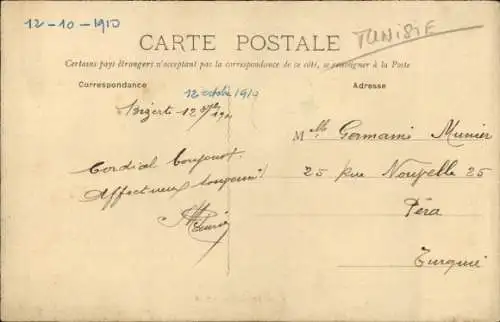 12-10-1910
TUNISIE
CARTE POSTALE
Certains pays étrangers n'acceptant pas la correspondance de ce côté, se renseigner à la Poste
Correspondance
Adresse
12 octobre 1910
Bizerte 12
Mlle Germaine Munier
Cordial bonjour.
25 Rue Nouvelle 25
Affectueux
Péra
Turquie